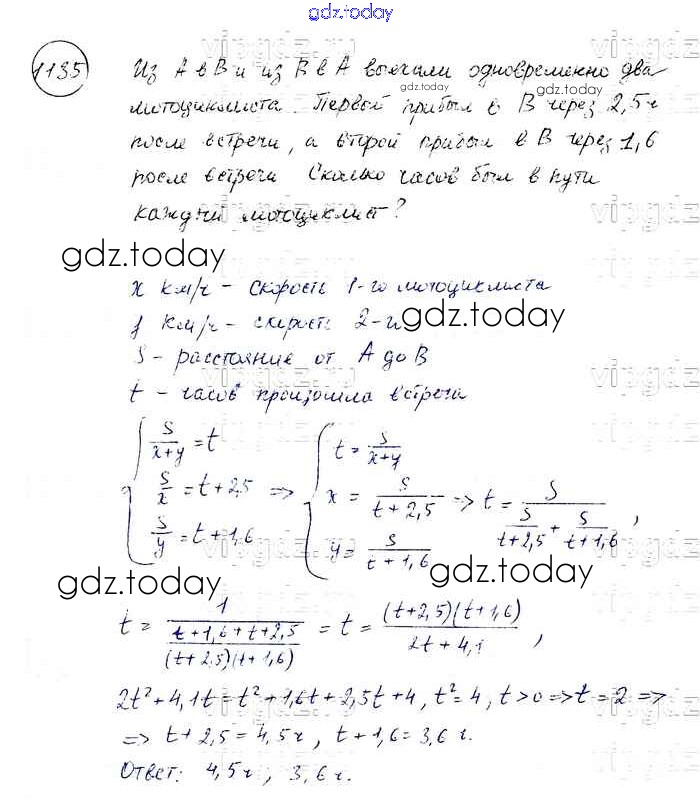 gdz.today
1135
Из А в В и из В в А выехали одновременно два
gdz.today
gdz.today
мотоциклиста. Первый прибыл в В через 2,5ч
после встречи, а второй прибыл в В через 1,6
после встречи Сколько часов был в пути
каждый мотоциклист?
gdz.today
x км/ч - скорость 1-го мотоциклиста
y км/ч - скорость 2-го
gdz.today
S - расстояние от А до В
t - часов произошла встреча
{ S/(x+y) = t
S/x = t+2,5 =>
S/y = t+1,6
{ t = S/(x+y)
x = S/(t+2,5) => t = S/(S/(t+2,5) + S/(t+1,6)),
y = S/(t+1,6)
gdz.today
gdz.today
t = 1/((t+1,6+t+2,5)/((t+2,5)(t+1,6))) = t = (t+2,5)(t+1,6)/(2t+4,1),
2t²+4,1t=t²+1,6t+2,5t+4, t²=4, t>0 => t=2 =>
=> t+2,5=4,5ч, t+1,6=3,6ч.
Ответ: 4,5ч, 3,6ч.
gdz.today